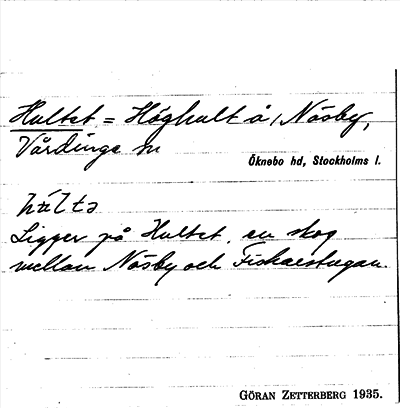 Hultet = Höghult å, Näsby,
Vårdinge sn
Öknebo hd, Stockholms l.
húltə
Ligger på Hultet, en skog
mellan Näsby och Fiskarstugan.
GÖRAN ZETTERBERG 1935.